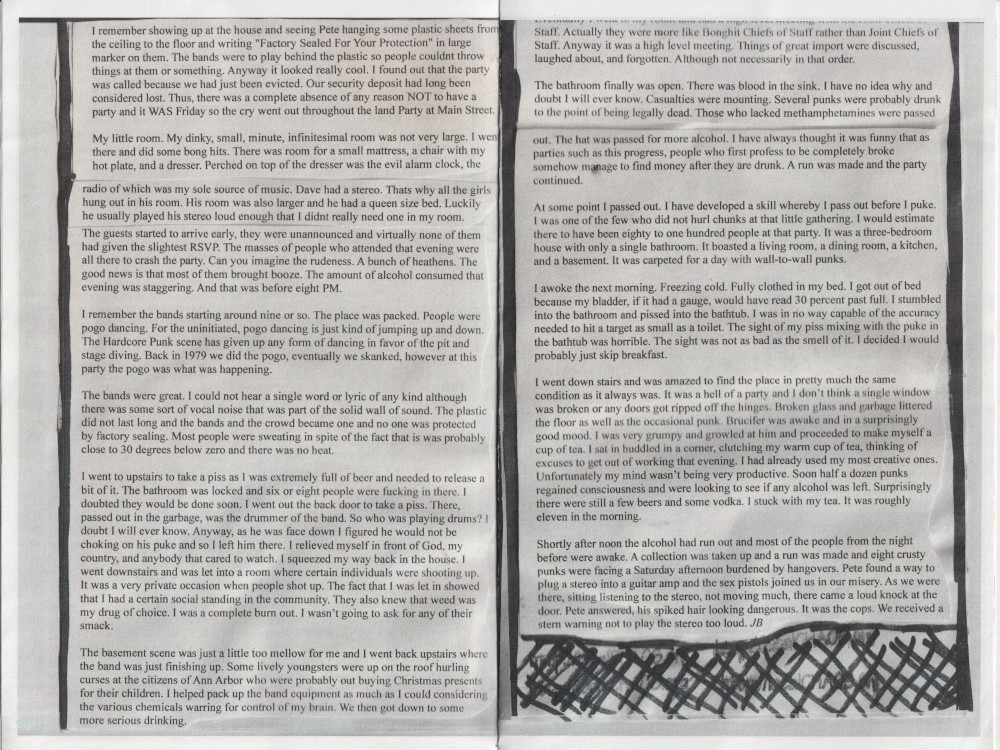 I remember showing up at the house and seeing Pete hanging some plastic sheets from
the ceiling to the floor and writing "Factory Sealed For Your Protection" in large
marker on them. The bands were to play behind the plastic so people couldnt throw
things at them or something. Anyway it looked really cool. I found out that the party
was called because we had just been evicted. Our security deposit had long been
considered lost. Thus, there was a complete absence of any reason NOT to have a
party and it WAS Friday so the cry went out throughout the land Party at Main Street.

My little room. My dinky, small, minute, infinitesimal room was not very large. I wen
there and did some bong hits. There was room for a small mattress, a chair with my
hot plate, and a dresser. Perched on top of the dresser was the evil alarm clock, the
radio of which was my sole source of music. Dave had a stereo. Thats why all the girls
hung out in his room. His room was also larger and he had a queen size bed. Luckily
he usually played his stereo loud enough that I didnt really need one in my room.
The guests started to arrive early, they were unannounced and virtually none of them
had given the slightest RSVP. The masses of people who attended that evening were
all there to crash the party. Can you imagine the rudeness. A bunch of heathens. The
good news is that most of them brought booze. The amount of alcohol consumed that
evening was staggering. And that was before eight PM.

I remember the bands starting around nine or so. The place was packed. People were
pogo dancing. For the uninitiated, pogo dancing is just kind of jumping up and down.
The Hardcore Punk scene has given up any form of dancing in favor of the pit and
stage diving. Back in 1979 we did the pogo, eventually we skanked, however at this
party the pogo was what was happening.

The bands were great. I could not hear a single word or lyric of any kind although
there was some sort of vocal noise that was part of the solid wall of sound. The plastic
did not last long and the bands and the crowd became one and no one was protected
by factory sealing. Most people were sweating in spite of the fact that is was probably
close to 30 degrees below zero and there was no heat.

I went to upstairs to take a piss as I was extremely full of beer and needed to release a
bit of it. The bathroom was locked and six or eight people were fucking in there. I
doubted they would be done soon. I went out the back door to take a piss. There,
passed out in the garbage, was the drummer of the band. So who was playing drums? I
doubt I will ever know. Anyway, as he was face down I figured he would not be
choking on his puke and so I left him there. I relieved myself in front of God, my
country, and anybody that cared to watch. I squeezed my way back in the house. I
went downstairs and was let into a room where certain individuals were shooting up.
It was a very private occasion when people shot up. The fact that I was let in showed
that I had a certain social standing in the community. They also knew that weed was
my drug of choice. I was a complete burn out. I wasn't going to ask for any of their
smack.

The basement scene was just a little too mellow for me and I went back upstairs where
the band was just finishing up. Some lively youngsters were up on the roof hurling
curses at the citizens of Ann Arbor who were probably out buying Christmas presents
for their children. I helped pack up the band equipment as much as I could considering
the various chemicals warring for control of my brain. We then got down to some
more serious drinking.

Eventually I went to my room and had a high level meeting with the
Staff. Actually they were more like Bonghit Chiefs of Staff rather than Joint Chiefs of
Staff. Anyway it was a high level meeting. Things of great import were discussed,
laughed about, and forgotten. Although not necessarily in that order.

The bathroom finally was open. There was blood in the sink. I have no idea why and
doubt I will ever know. Casualties were mounting. Several punks were probably drunk
to the point of being legally dead. Those who lacked methamphetamines were passed
out. The hat was passed for more alcohol. I have always thought it was funny that as
parties such as this progress, people who first profess to be completely broke
somehow manage to find money after they are drunk. A run was made and the party
continued.

At some point I passed out. I have developed a skill whereby I pass out before I puke.
I was one of the few who did not hurl chunks at that little gathering. I would estimate
there to have been eighty to one hundred people at that party. It was a three-bedroom
house with only a single bathroom. It boasted a living room, a dining room, a kitchen,
and a basement. It was carpeted for a day with wall-to-wall punks.

I awoke the next morning. Freezing cold. Fully clothed in my bed. I got out of bed
because my bladder, if it had a gauge, would have read 30 percent past full. I stumbled
into the bathroom and pissed into the bathtub. I was in no way capable of the accuracy
needed to hit a target as small as a toilet. The sight of my piss mixing with the puke in
the bathtub was horrible. The sight was not as bad as the smell of it. I decided I would
probably just skip breakfast.

I went down stairs and was amazed to find the place in pretty much the same
condition as it always was. It was a hell of a party and I don't think a single window
was broken or any doors got ripped off the hinges. Broken glass and garbage littered
the floor as well as the occasional punk. Brucifer was awake and in a surprisingly
good mood. I was very grumpy and growled at him and proceeded to make myself a
cup of tea. I sat in huddled in a corner, clutching my warm cup of tea, thinking of
excuses to get out of working that evening. I had already used my most creative ones.
Unfortunately my mind wasn't being very productive. Soon half a dozen punks
regained consciousness and were looking to see if any alcohol was left. Surprisingly
there were still a few beers and some vodka. I stuck with my tea. It was roughly
eleven in the morning.

Shortly after noon the alcohol had run out and most of the people from the night
before were awake. A collection was taken up and a run was made and eight crusty
punks were facing a Saturday afternoon burdened by hangovers. Pete found a way to
plug a stereo into a guitar amp and the sex pistols joined us in our misery. As we were
there, sitting listening to the stereo, not moving much, there came a loud knock at the
door. Pete answered, his spiked hair looking dangerous. It was the cops. We received a
stern warning not to play the stereo too loud. JB